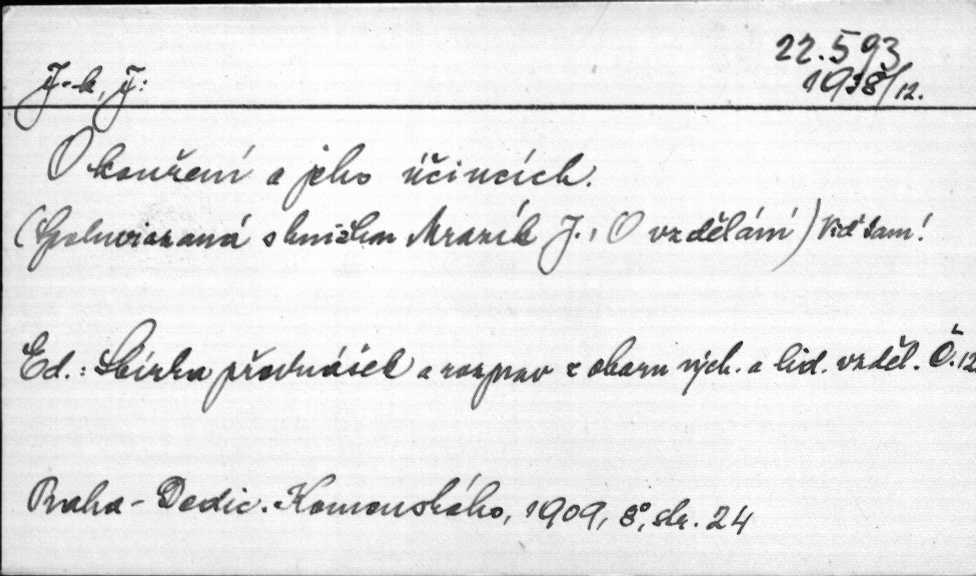 22.593
J-k, J:
1938/12.
O kouření a jeho účincích.
(Spoluvázaná s knížkou Mrazík J., O vzdělání) Viď tam!
Ed.: Sbírka přednášek a rozprav z oboru vých. a lid. vzděl. Č. 12
Praha - Dedic. Komenského, 1909, 8°, str. 24